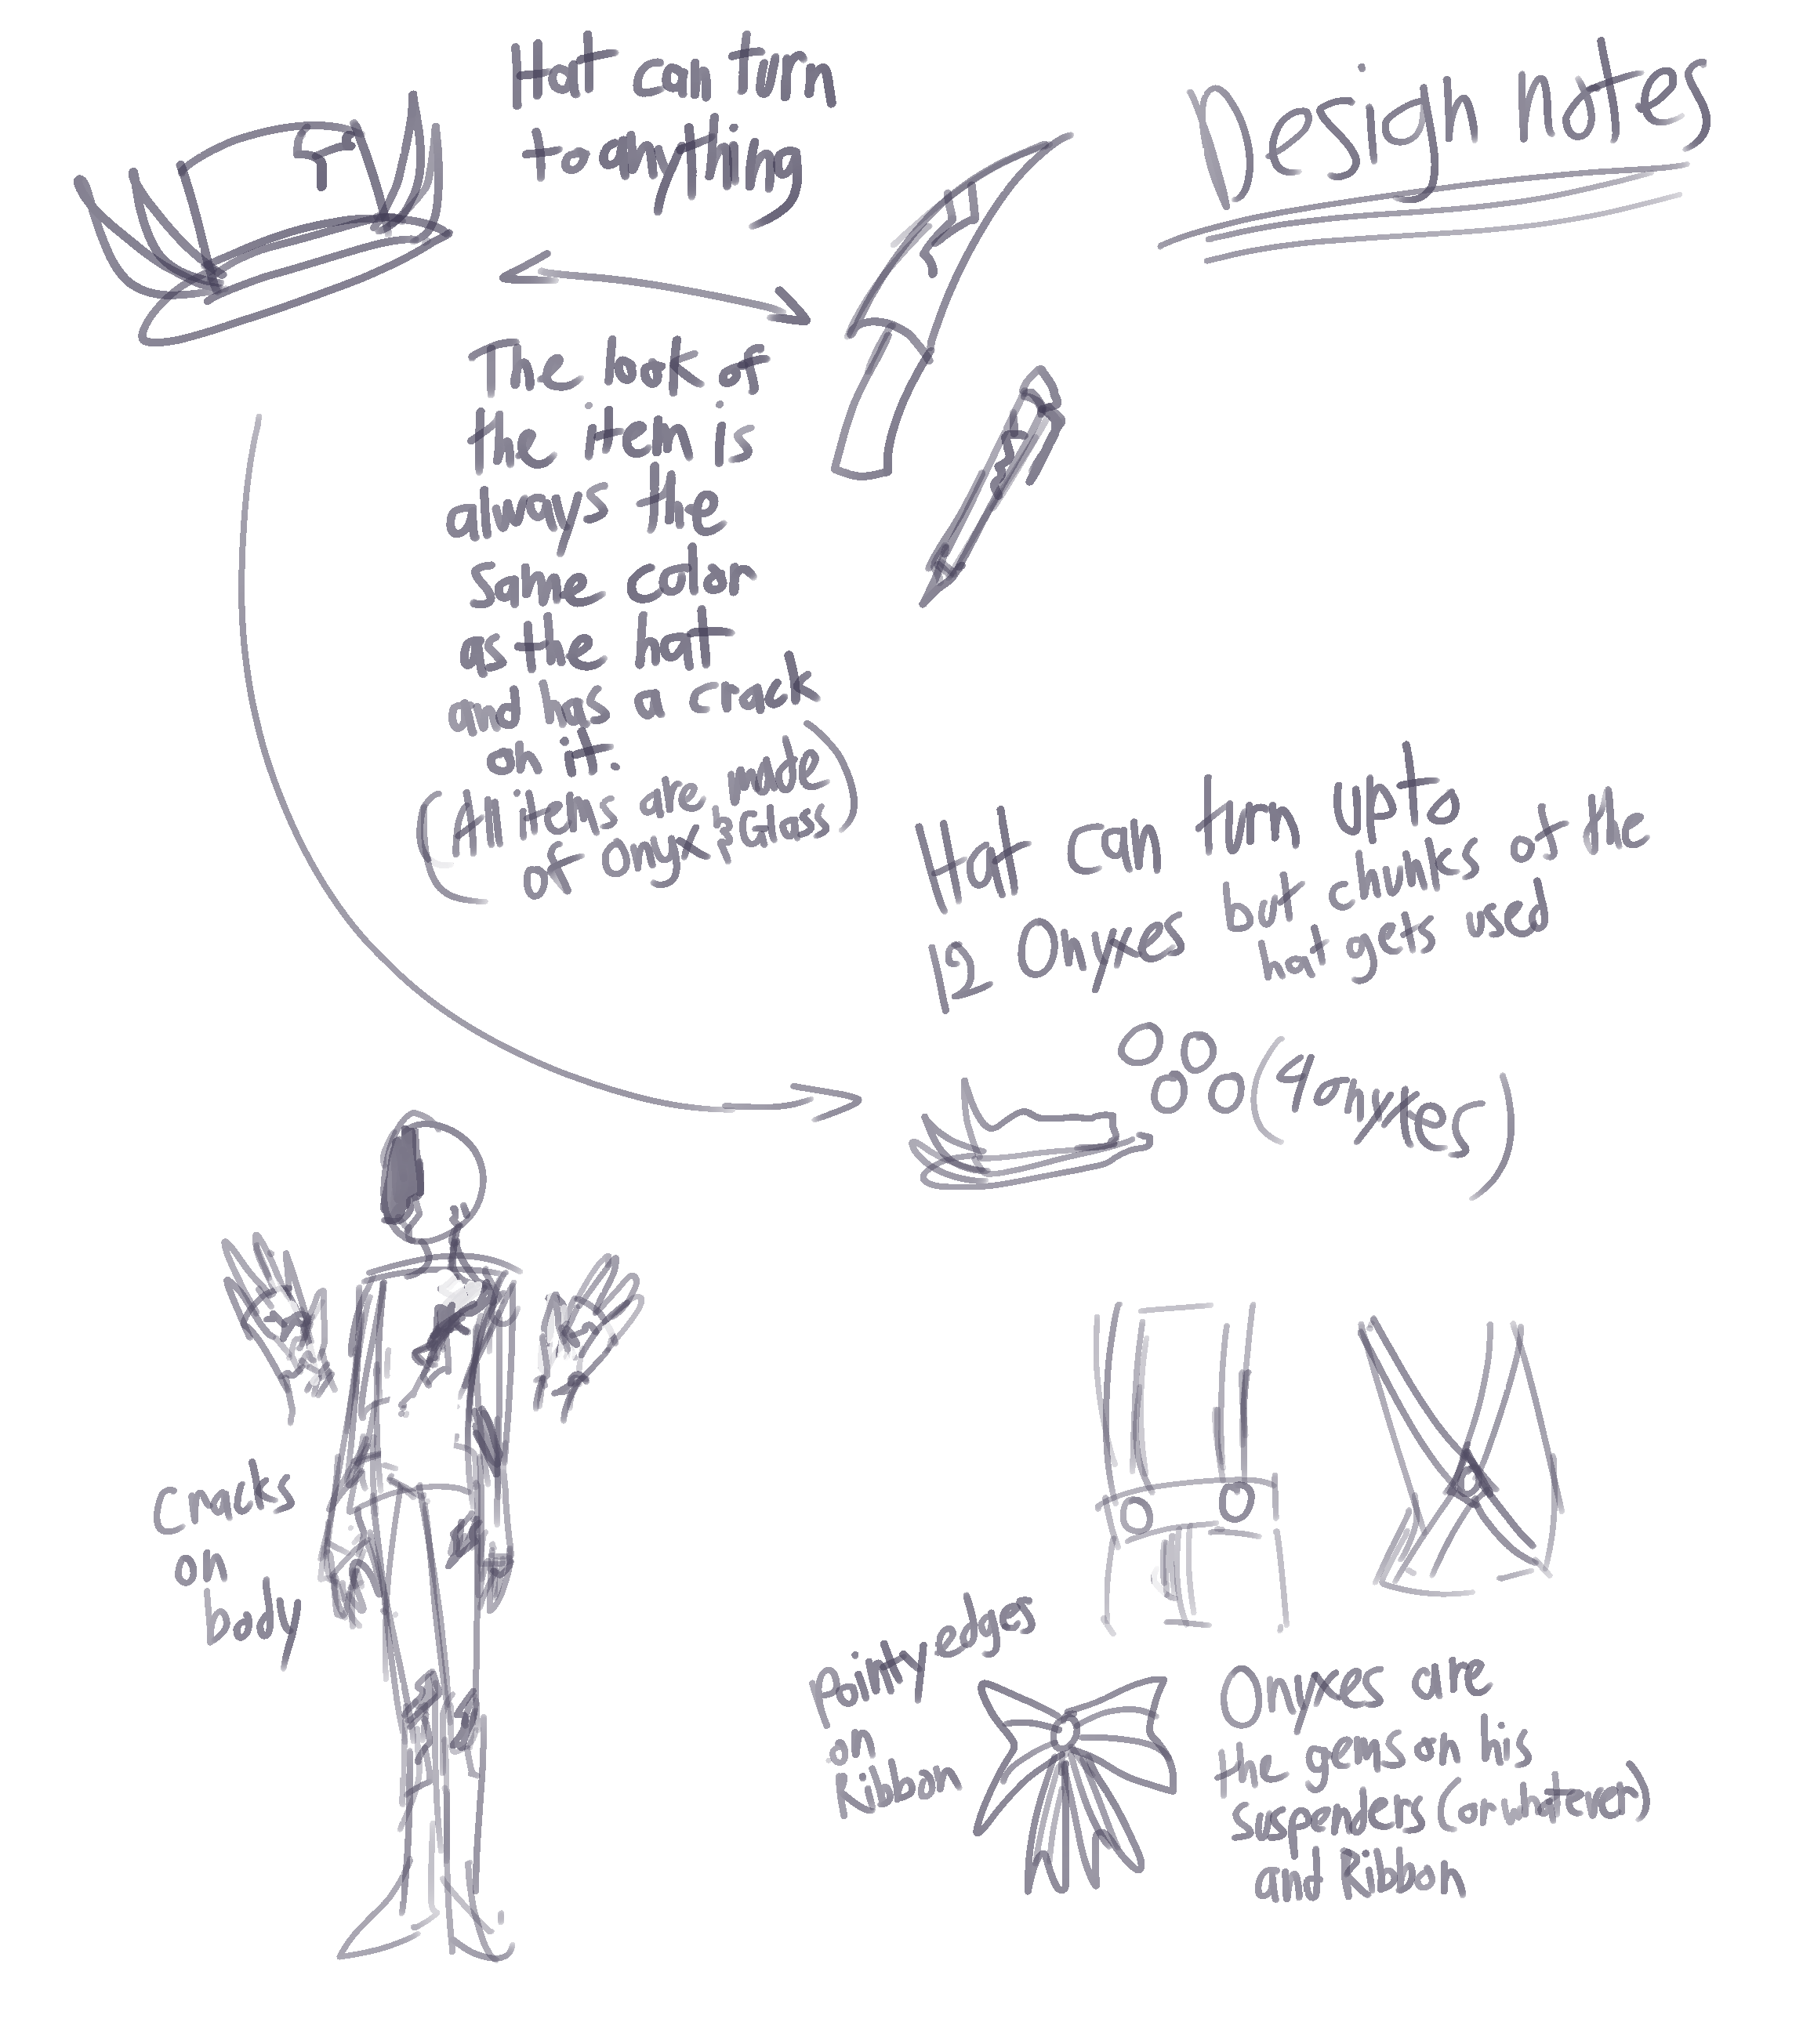 Design notes
Hat can turn
to anything
The look of
the item is
always the
same color
as the hat
and has a crack
on it.
(All items are made
of Onyx & Glass)
Hat can turn upto
12 Onyxes but chunks of the
hat gets used
(4 onyxes)
Cracks
on
body
Pointy edges
on
Ribbon
Onyxes are
the gems on his
suspenders (or whatever)
and Ribbon